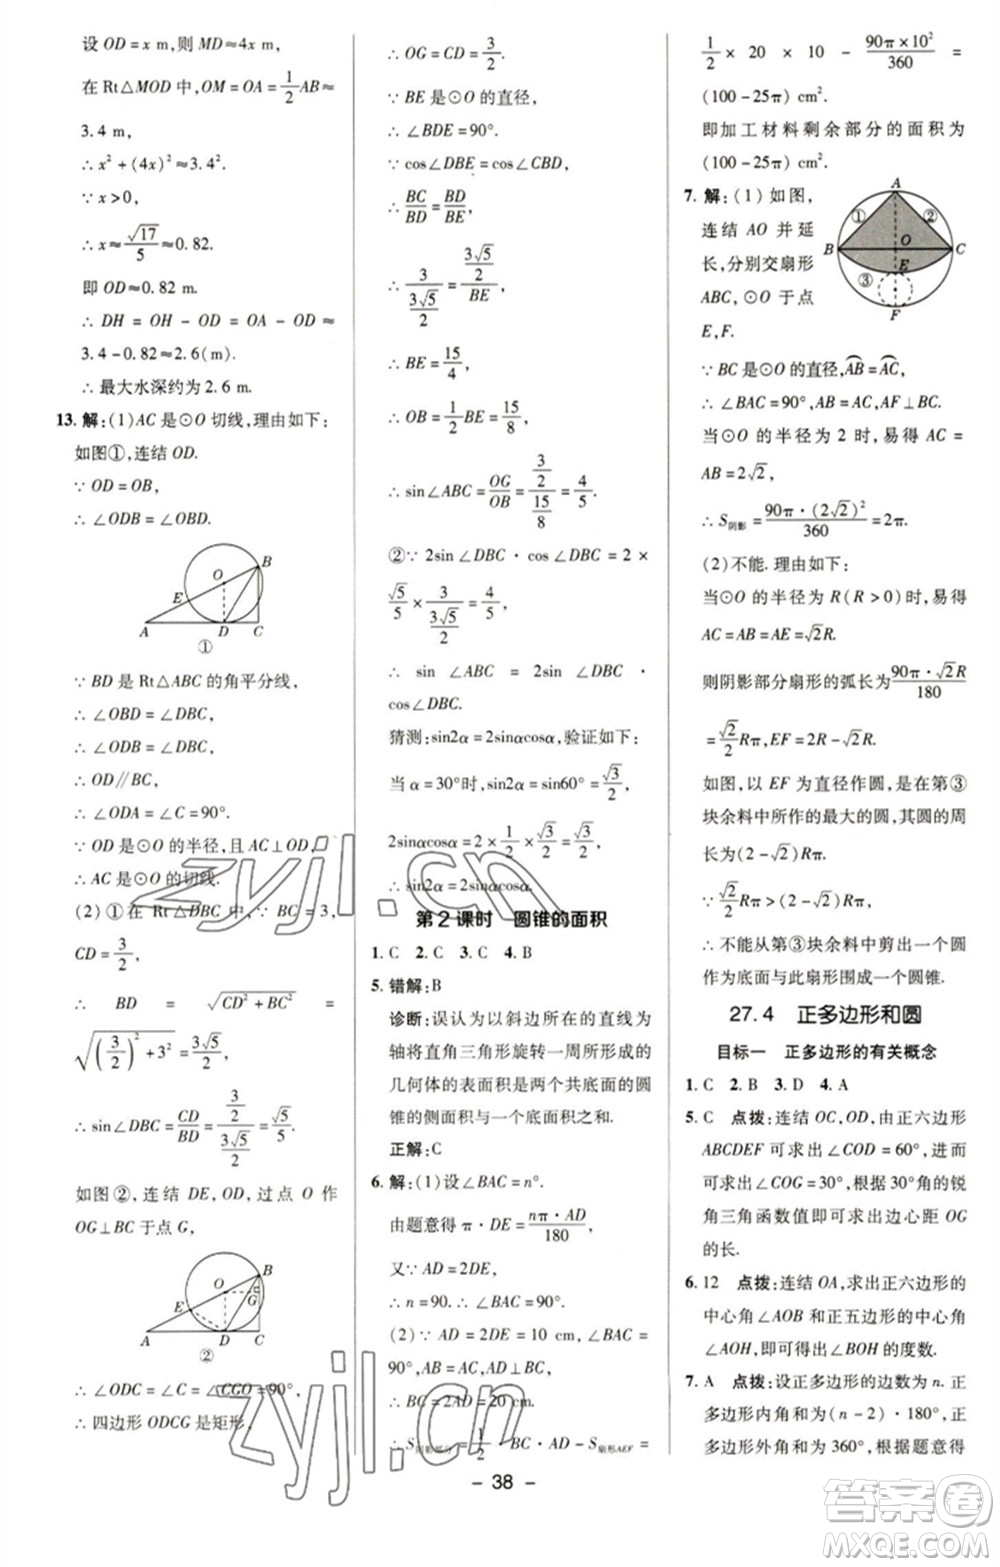 设 OD = x m,则 MD≈4x m,
在 Rt△MOD 中,OM = OA = 1/2 AB≈
3.4 m,
∴ x² + (4x)² ≈3.4².
∵ x>0,
∴ x≈ √17/5 ≈0.82.
即 OD≈0.82 m.
∴ DH = OH - OD = OA - OD ≈
3.4-0.82≈2.6(m).
∴ 最大水深约为 2.6 m.
13. 解:(1)AC 是⊙O 切线,理由如下:
如图①,连结 OD.
∵ OD = OB,
∴ ∠ODB = ∠OBD.
O B E A D C
①
∵ BD 是 Rt△ABC 的角平分线,
∴ ∠OBD = ∠DBC,
∴ ∠ODB = ∠DBC,
∴ OD∥BC,
∴ ∠ODA = ∠C = 90°.
∵ OD 是⊙O 的半径,且 AC⊥OD,
∴ AC 是⊙O 的切线.
(2) ①在 Rt△DBC 中,∵ BC = 3,
CD = 3/2,
∴ BD = √(CD² + BC²) =
√((3/2)² + 3²) = 3√5/2.
∴ sin∠DBC = CD/BD = (3/2)/(3√5/2) = √5/5.
如图②,连结 DE,OD,过点 O 作
OG⊥BC 于点 G,
O B G E A D C
②
∴ ∠ODC = ∠C = ∠CGO = 90°,
∴ 四边形 ODCG 是矩形,
∴ OG = CD = 3/2.
∵ BE 是⊙O 的直径,
∴ ∠BDE = 90°.
∵ cos∠DBE = cos∠CBD,
∴ BC/BD = BD/BE,
∴ 3/(3√5/2) = (3√5/2)/BE,
∴ BE = 15/4,
∴ OB = 1/2 BE = 15/8,
∴ sin∠ABC = OG/OB = (3/2)/(15/8) = 4/5.
②∵ 2sin∠DBC · cos∠DBC = 2 ×
√5/5 × 3/(3√5/2) = 4/5,
∴ sin ∠ABC = 2sin ∠DBC ·
cos∠DBC.
猜测:sin2α = 2sinαcosα,验证如下:
当 α = 30°时,sin2α = sin60° = √3/2,
2sinαcosα = 2 × 1/2 × √3/2 = √3/2,
∴ sin2α = 2sinαcosα.
第 2 课时 圆锥的面积
1. C 2. C 3. C 4. B
5. 错解:B
诊断:误认为以斜边所在的直线为
轴将直角三角形旋转一周所形成的
几何体的表面积是两个共底面的圆
锥的侧面积与一个底面积之和.
正解:C
6. 解:(1)设∠BAC = n°.
由题意得 π · DE = nπ · AD/180,
又∵ AD = 2DE,
∴ n = 90. ∴ ∠BAC = 90°.
(2) ∵ AD = 2DE = 10 cm, ∠BAC =
90°,AB = AC,AD⊥BC,
∴ BC = 2AD = 20 cm.
∴ S阴影部分 = 1/2 · BC · AD - S扇形AEF =
1/2 × 20 × 10 - 90π×10²/360 =
(100-25π) cm².
即加工材料剩余部分的面积为
(100-25π) cm².
7. 解:(1) 如图,
连结 AO 并延
长,分别交扇形
ABC,⊙O 于点
E,F.
A ① ② B O C E ③ F
∵ BC 是⊙O 的直径,AB⌒ = AC⌒,
∴ ∠BAC = 90°,AF⊥BC.
当⊙O 的半径为 2 时,易得 AC =
AB = 2√2,
∴ S阴影 = 90π·(2√2)²/360 = 2π.
(2)不能. 理由如下:
当⊙O 的半径为 R(R>0)时,易得
AC = AB = AE = √2R.
则阴影部分扇形的弧长为 90π·√2R/180
= √2/2 Rπ,EF = 2R - √2R.
如图,以 EF 为直径作圆,是在第③
块余料中所作的最大的圆,其圆的周
长为(2-√2)Rπ.
∵ √2/2 Rπ>(2-√2)Rπ,
∴ 不能从第③块余料中剪出一个圆
作为底面与此扇形围成一个圆锥.
27.4 正多边形和圆
目标一 正多边形的有关概念
1. C 2. B 3. D 4. A
5. C 点拨:连结 OC,OD,由正六边形
ABCDEF 可求出∠COD = 60°,进而
可求出∠COG = 30°,根据 30°角的锐
角三角函数值即可求出边心距 OG
的长.
6. 12 点拨:连结 OA,求出正六边形的
中心角∠AOB 和正五边形的中心角
∠AOH,即可得出∠BOH 的度数.
7. A 点拨:设正多边形的边数为 n. 正
多边形内角和为(n-2)·180°,正
多边形外角和为 360°,根据题意得
- 38 -
zyjl.cn
zyjl.cn
答案圈
MXQE.COM